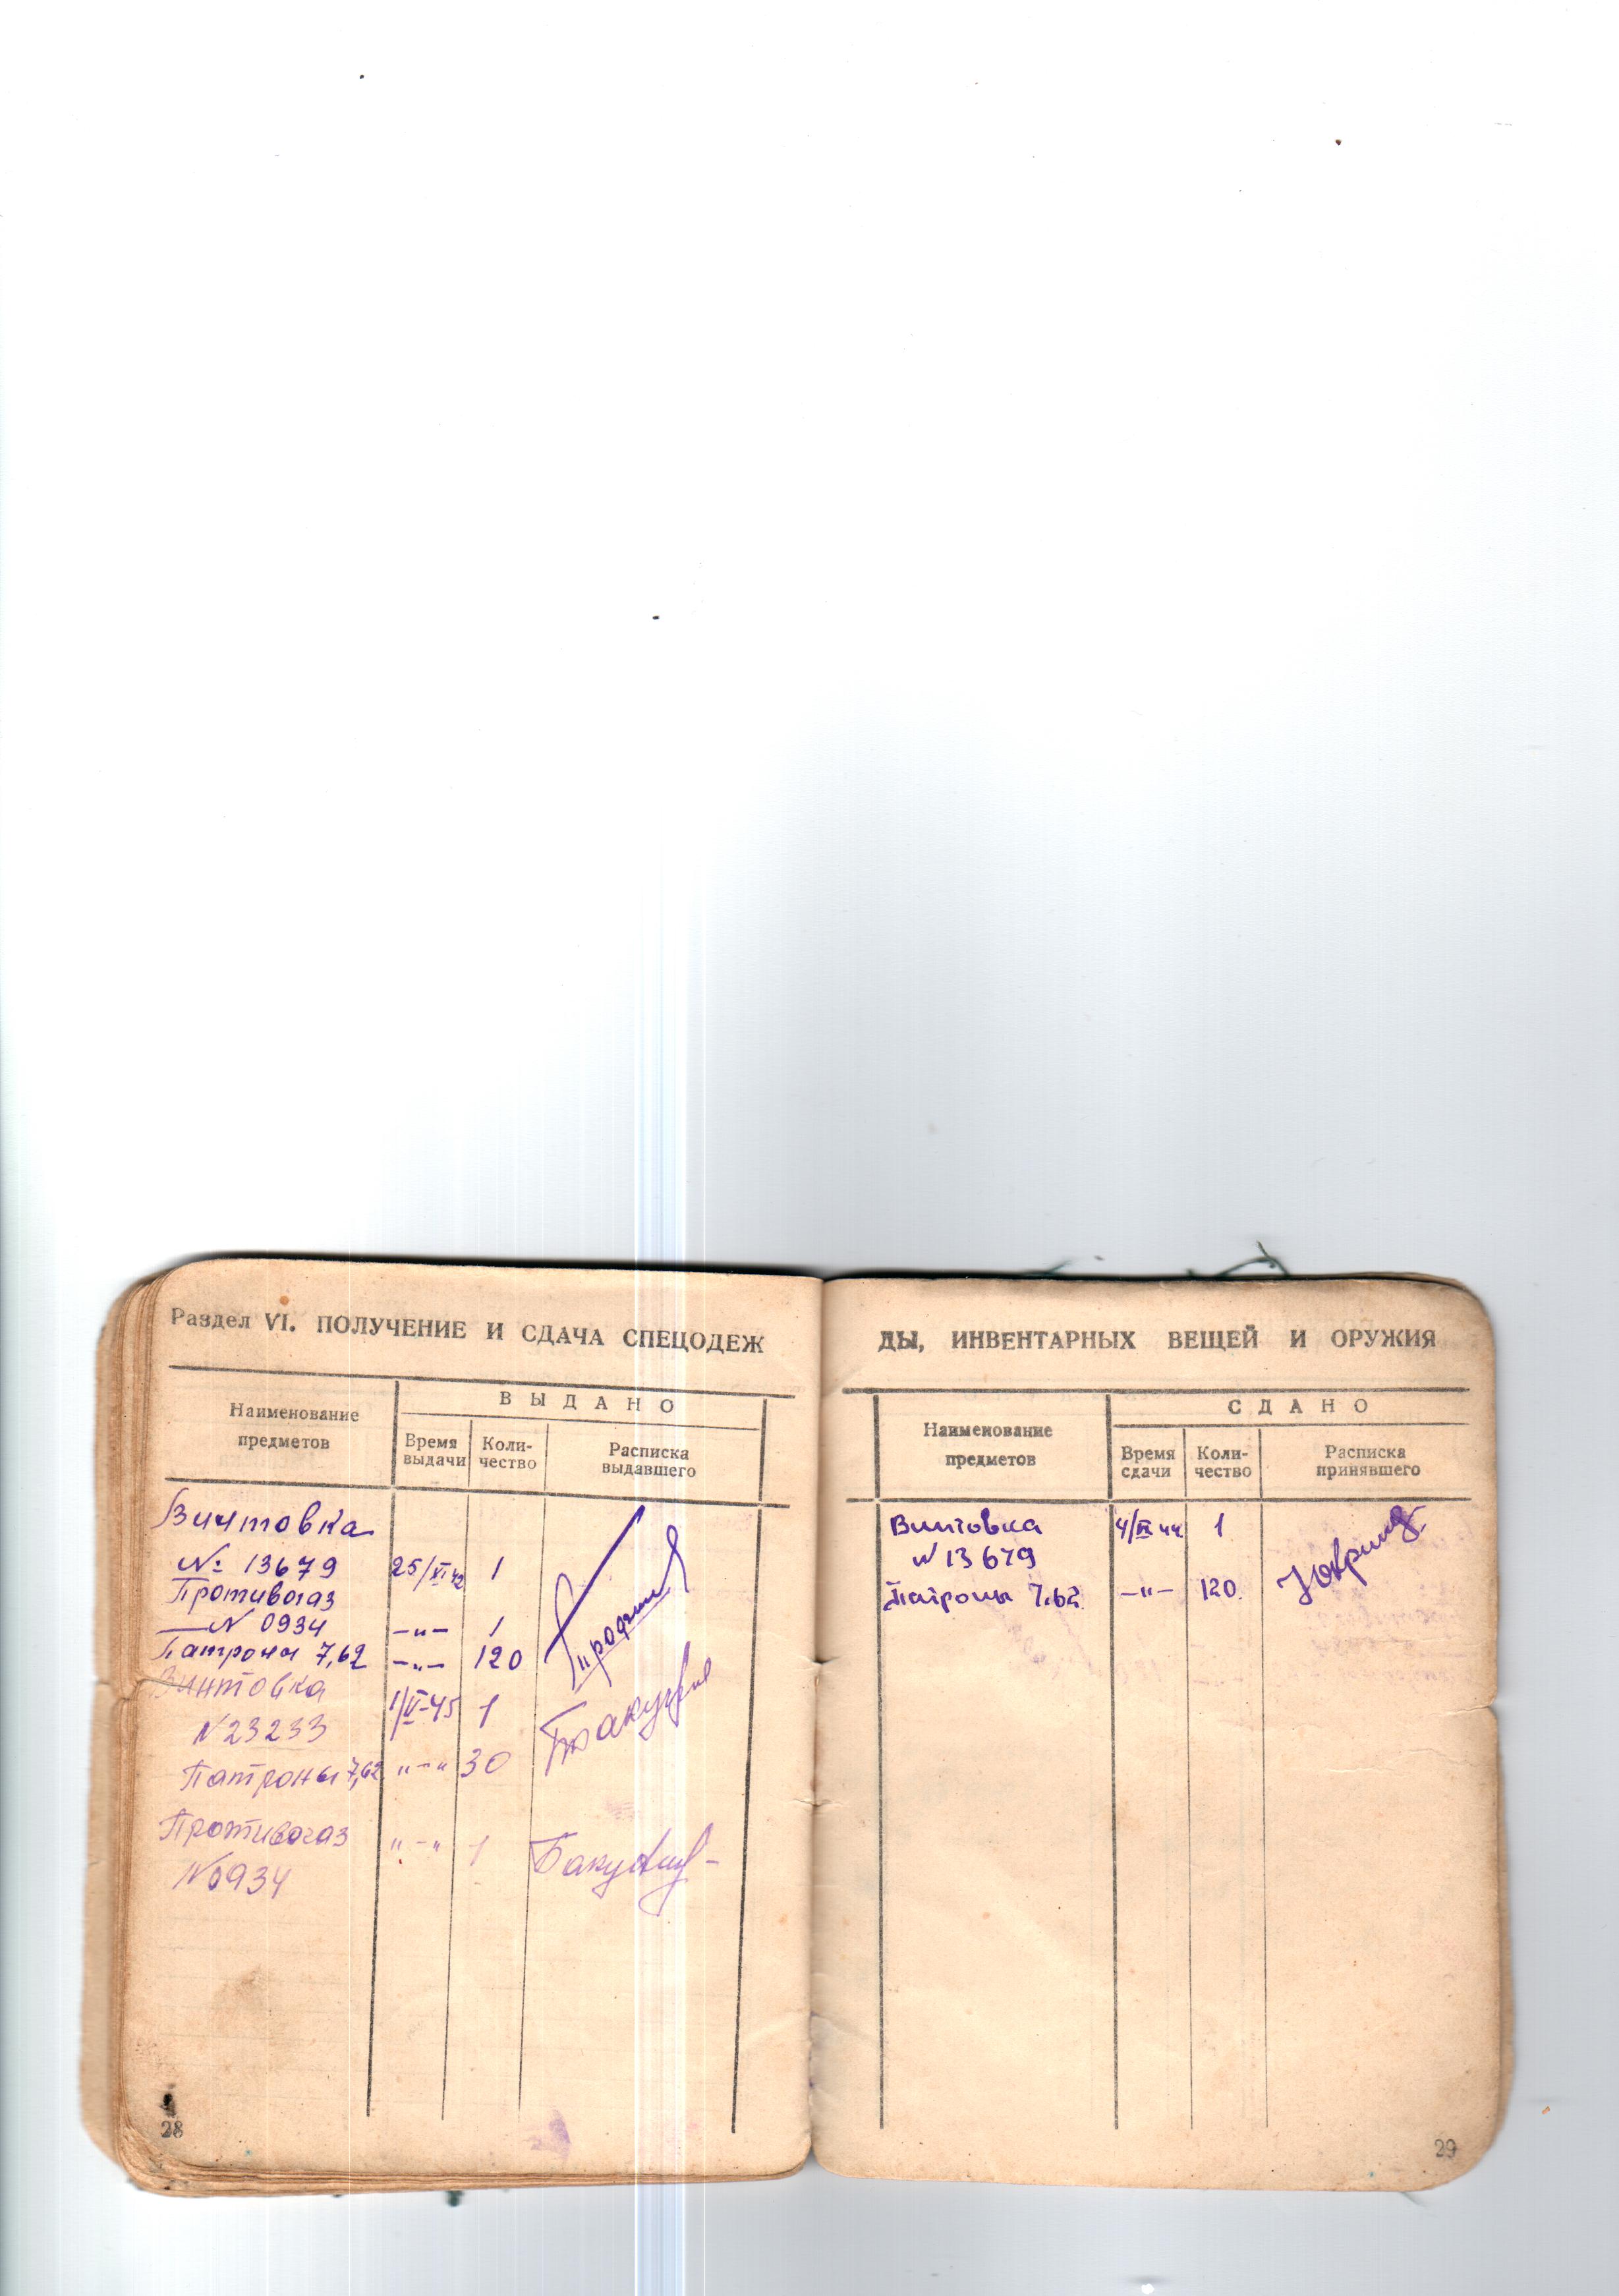 Раздел VI. ПОЛУЧЕНИЕ И СДАЧА СПЕЦОДЕЖ
Наименование предметов
ВЫДАНО
Время выдачи
Коли-чество
Расписка выдавшего
Винтовка
№ 13679 25/VI 42 1
Противогаз
N 0934 —"— 1
Патроны 7,62 —"— 120
Винтовка 1/V-45 1
N 23233
Патроны 7,62 "—" 30
Противогаз "—" 1
N 0934
28
ДЫ, ИНВЕНТАРНЫХ ВЕЩЕЙ И ОРУЖИЯ
Наименование предметов
СДАНО
Время сдачи
Коли-чество
Расписка принявшего
Винтовка 1
N 13679
Патроны 7.62 —"— 120
29